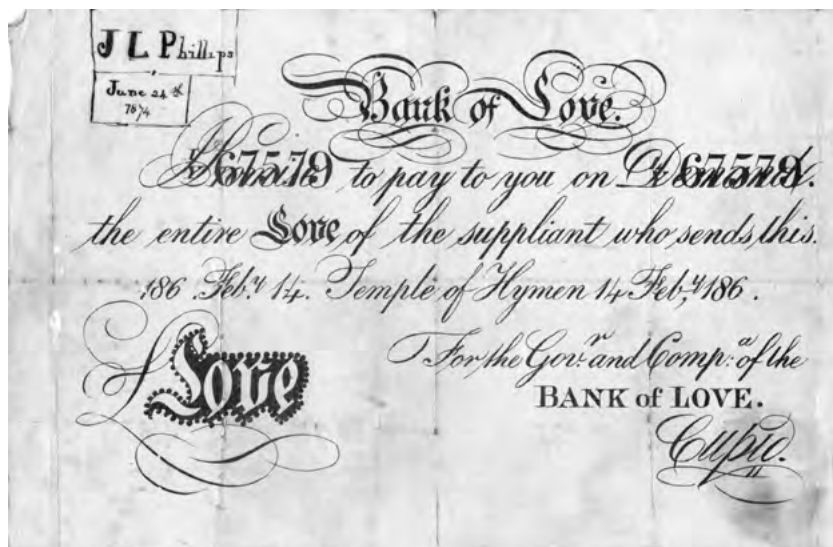 J L Phillips
June 24th
1874
Bank of Love.
I Promise to pay to you on Demand.
№ 67579 № 67579
the entire Love of the suppliant who sends this.
186 Feb.y 14. Temple of Hymen 14 Feb,y 186 .
For the Gov.r and Comp.a of the
BANK of LOVE.
£Love
Cupid.